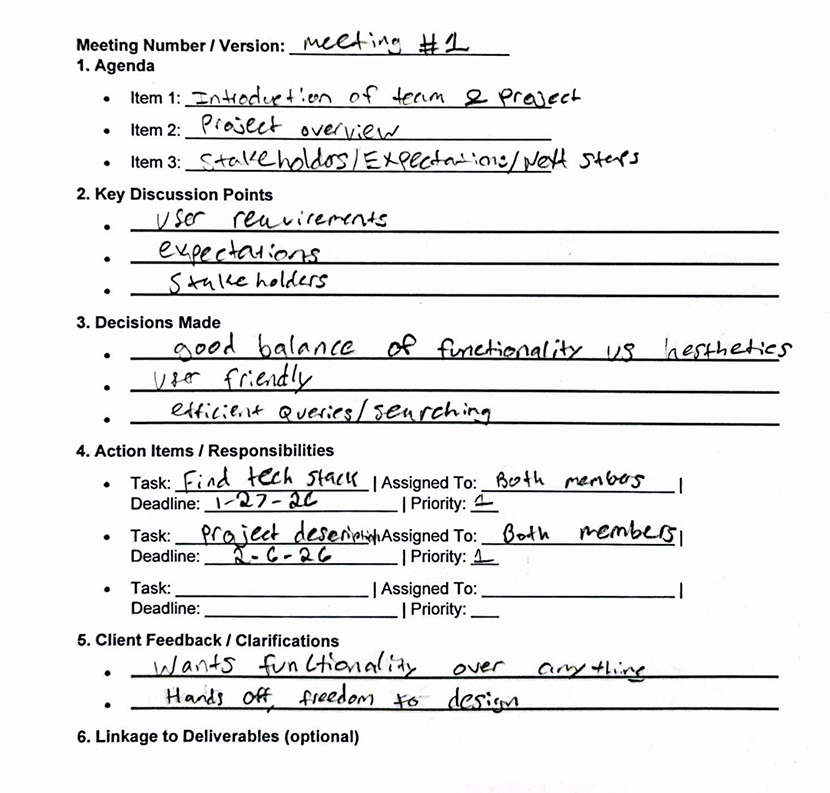 Meeting Number / Version: Meeting #1
1. Agenda
• Item 1: Introduction of team & Project
• Item 2: Project overview
• Item 3: Stakeholdos/Expectations/Next steps
2. Key Discussion Points
• User requirements
• expectations
• Stakeholders
3. Decisions Made
• good balance of functionality vs aesthetics
• User friendly
• efficient Queries/searching
4. Action Items / Responsibilities
• Task: Find tech stack | Assigned To: Both membos |
Deadline: 1-27-26 | Priority: 1
• Task: Project description Assigned To: Both members |
Deadline: 2-6-26 | Priority: 1
• Task: | Assigned To: |
Deadline: | Priority:
5. Client Feedback / Clarifications
• Wants functionality over anything
• Hands off, freedom to design
6. Linkage to Deliverables (optional)